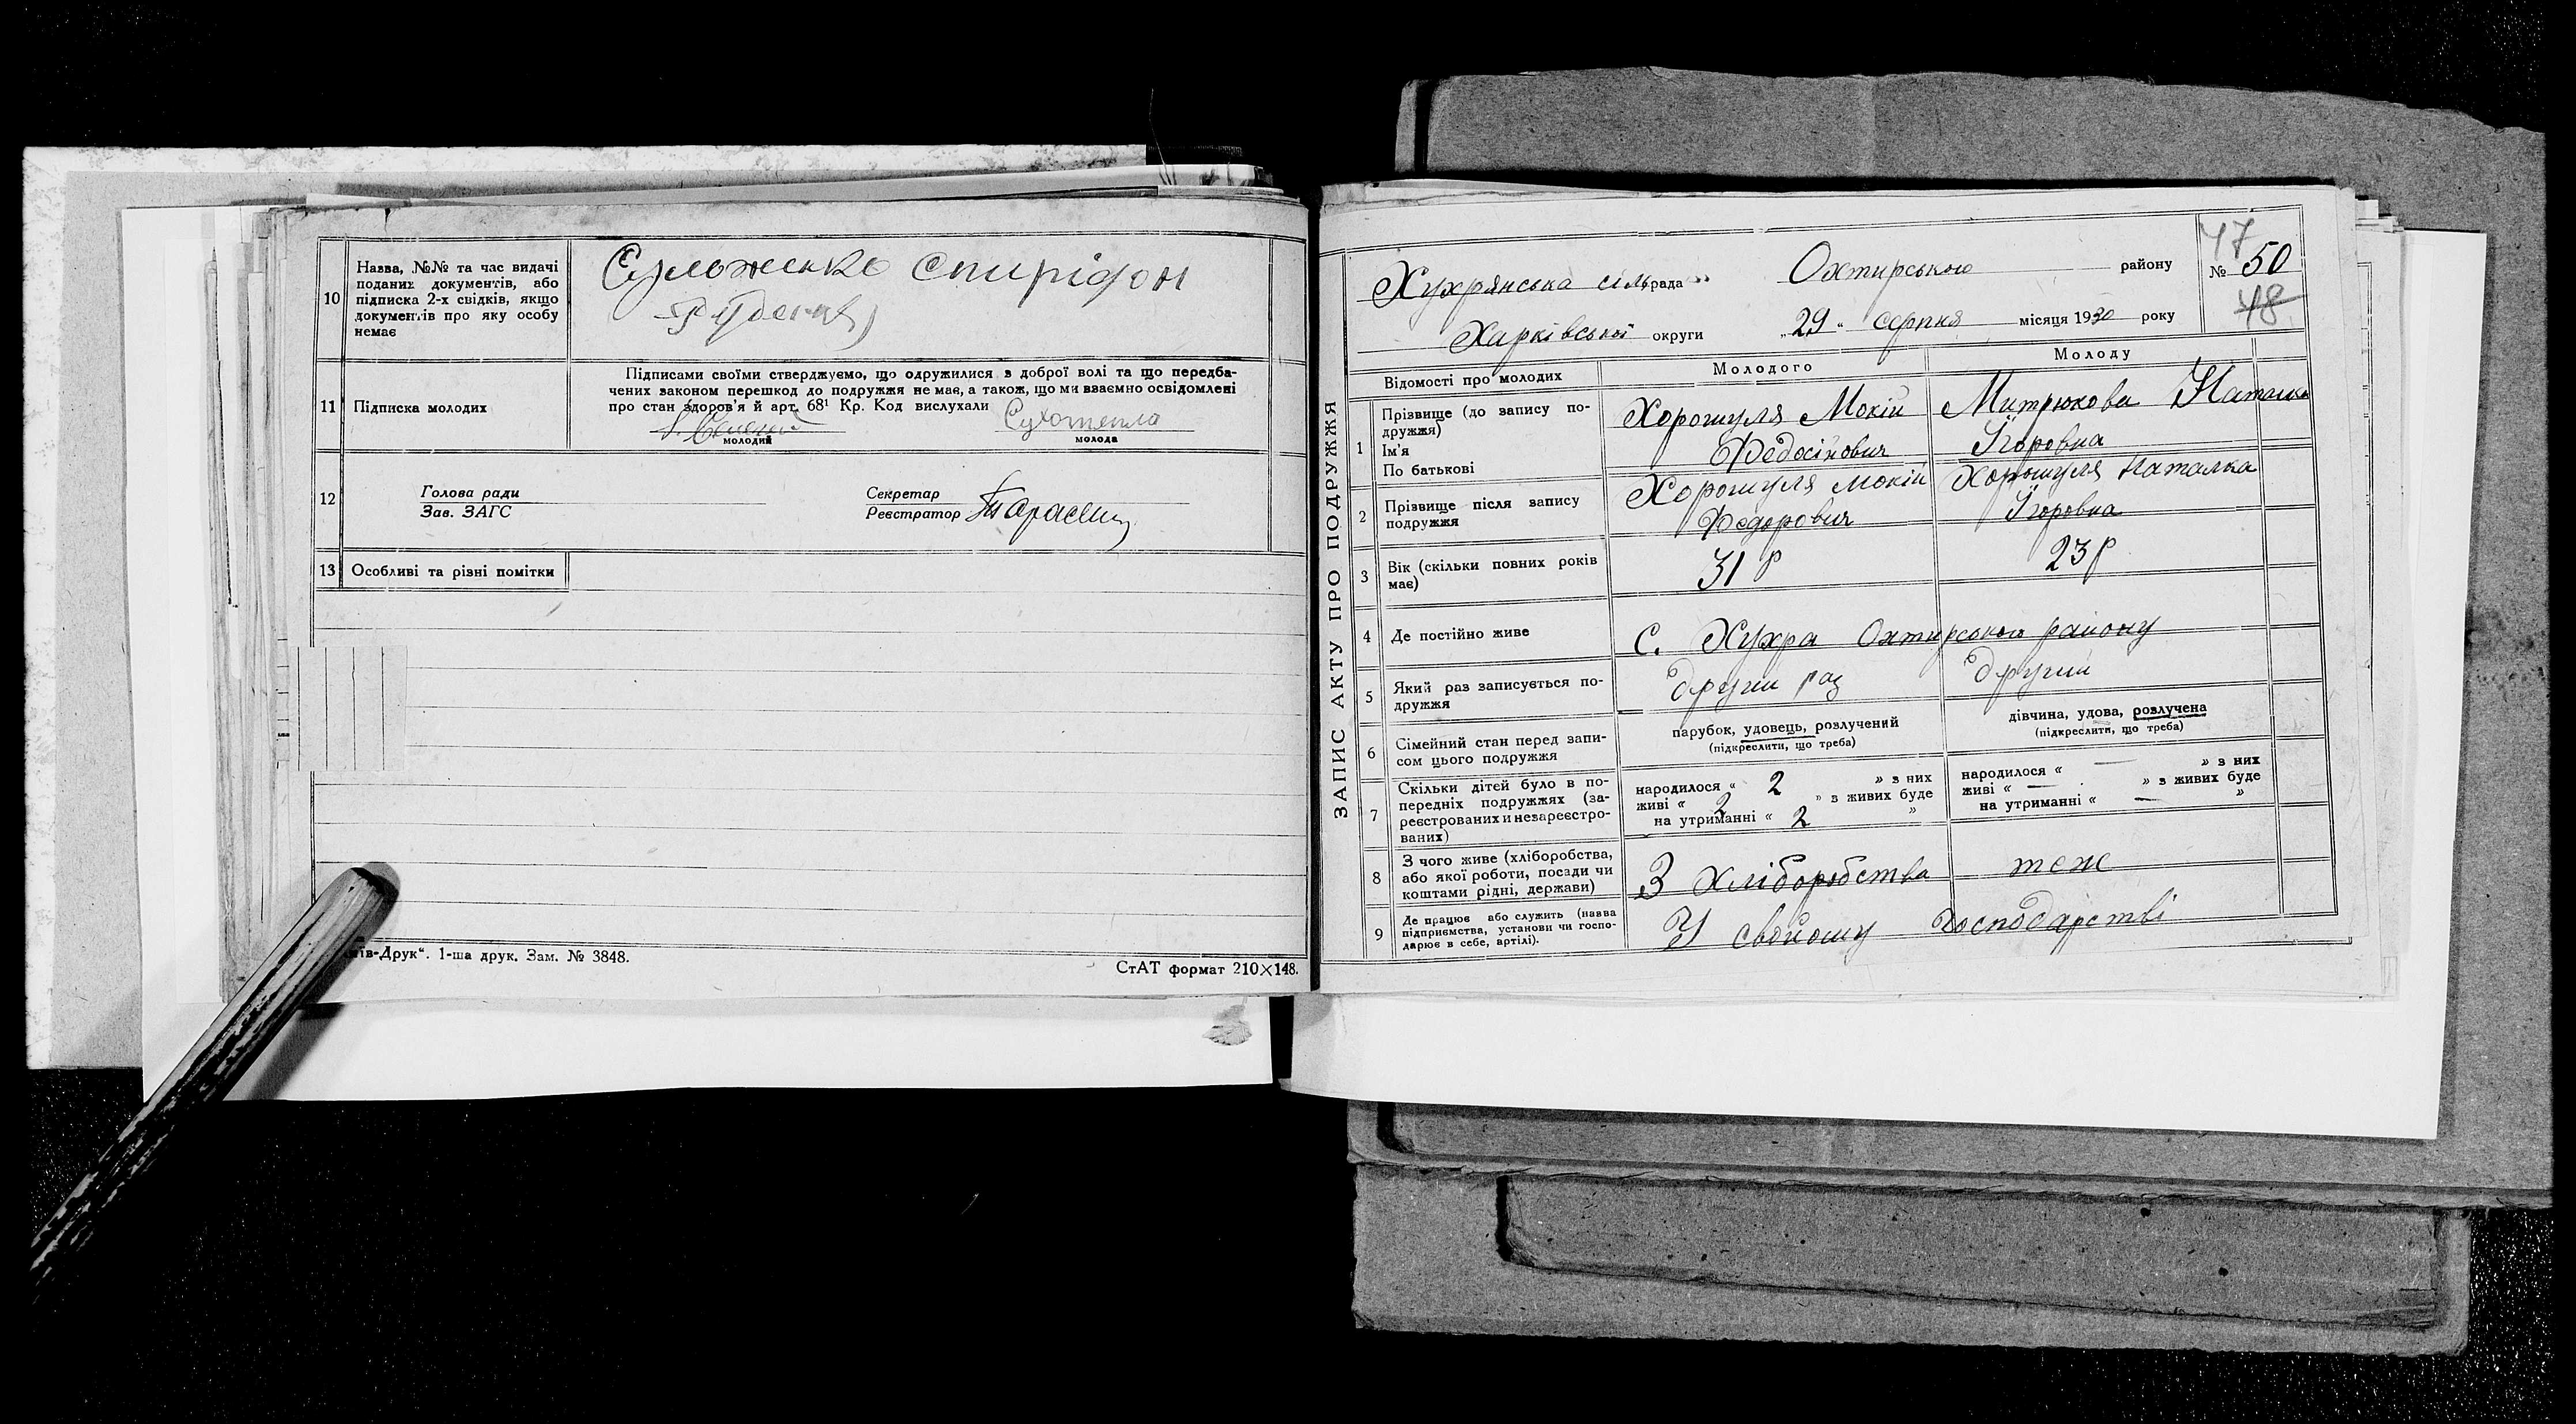 10
Назва, №№ та час видачі
поданих документів, або
підписка 2-х свідків, якщо
документів про яку особу
немає
Спирідон
11
Підписка молодих
Підписами своїми стверджуємо, що одружилися з доброї волі та що передба-
чених законом перешкод до подружжя не має, а також, що ми взаємно освідомлені
про стан здоров'я й арт. 68¹ Кр. Код вислухали
молодий
Сухотепла
молода
12
Голова ради
Зав. ЗАГС
Секретар
Реєстратор
13
Особливі та різні помітки
ів-Друк“. 1-ша друк. Зам. № 3848.
СтАТ формат 210×148.
ЗАПИС АКТУ ПРО ПОДРУЖЖЯ
47
Хухрянська сільрада Охтирського району
№ 50
48
Харківської округи „29“ серпня місяця 1930 року
Відомості про молодих
Молодого
Молоду
1
Прізвище (до запису по-
дружжя)
Ім'я
По батькові
Хорошуля Мокій
Федосійович
Митрюкова Наталка
Ігоровна
2
Прізвище після запису
подружжя
Хорошуля Мокій
Федорович
Хорошуля Наталка
Ігоровна
3
Вік (скільки повних років
має)
31 р
23 р
4
Де постійно живе
с. Хухра Охтирського району
5
Який раз записується по-
дружжя
другий раз
другий
6
Сімейний стан перед запи-
сом цього подружжя
парубок, удовець, розлучений
(підкреслити, що треба)
дівчина, удова, розлучена
(підкреслити, що треба)
7
Скільки дітей було в по-
передніх подружжях (за-
реєстрованих и незареєстро-
ваних)
народилося “ 2 » з них
живі “ 2 » з живих буде
на утриманні “ 2 »
народилося “ — » з них
живі “ — » з живих буде
на утриманні “ — »
8
З чого живе (хліборобства,
або якої роботи, посади чи
коштами рідні, держави)
З хліборобства
теж
9
Де працює або служить (назва
підприємства, установи чи госпо-
дарює в себе, артілі).
У свойому господарстві